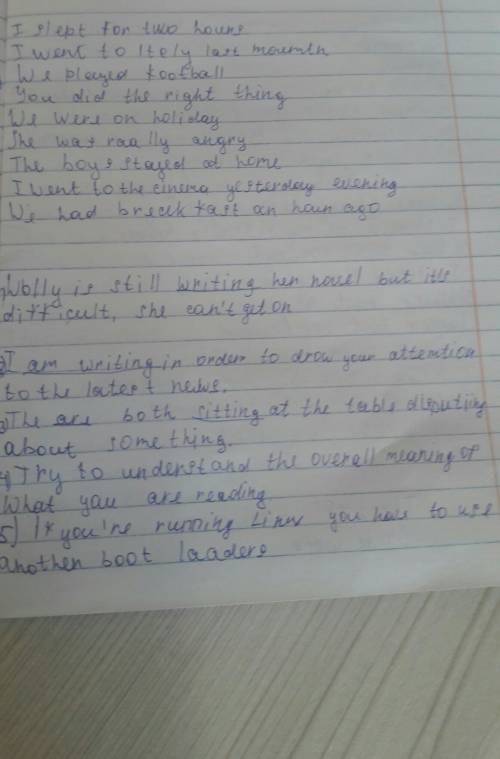 I slept for two hours
I went to Itely last mounth
We played football
You did the right thing
We were on holiday
She was raally angry
The boys stayed at home
I went to the cinema yesterday evening
We had breakfast an hour ago
Wolly is still writing her novel but it's
difficult, she can't get on
2) I am writing in order to drow your attention
to the latest news.
3) The are both sitting at the table disputiing
about something.
4) Try to understand the overall meaning of
what you are reading
5) If you're running Linux you have to use
another boot loaders